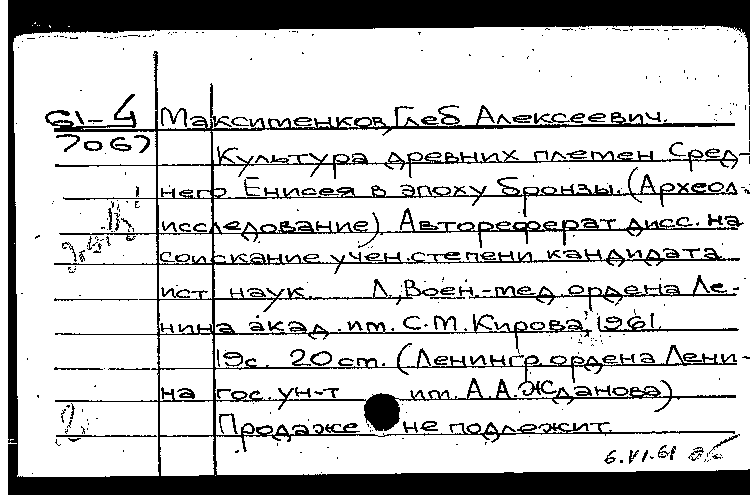 61-4 Максименков, Глеб Алексеевич.
7067
Культура древних племен Сред-
него Енисея в эпоху бронзы. (Археол.
исследование). Автореферат дисс. на
соискание учен. степени кандидата
ист. наук. Л., Воен.-мед. ордена Ле-
нина акад. им. С.М. Кирова, 1961.
19с. 20 см. (Ленингр. ордена Лени-
на гос. ун-т им. А.А. Жданова).
Продаже не подлежит.
6.VI.61